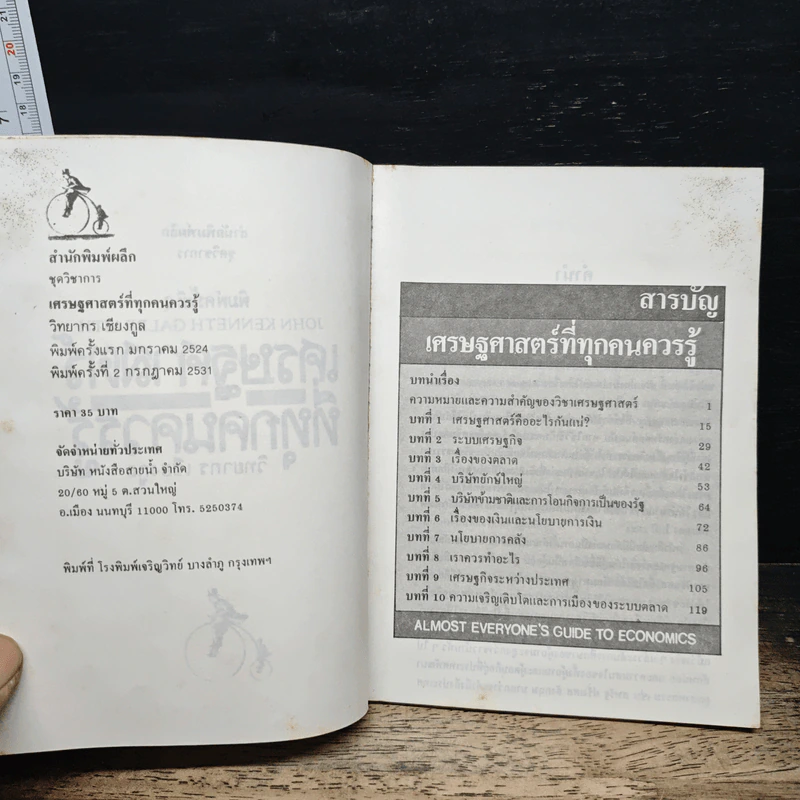 สำนักพิมพ์ผลึก
ชุดวิชาการ
เศรษฐศาสตร์ที่ทุกคนควรรู้
วิทยากร เชียงกูล
พิมพ์ครั้งแรก มกราคม 2524
พิมพ์ครั้งที่ 2 กรกฎาคม 2531
ราคา 35 บาท
จัดจำหน่ายทั่วประเทศ
บริษัท หนังสือสายน้ำ จำกัด
20/60 หมู่ 5 ต.สวนใหญ่
อ.เมือง นนทบุรี 11000 โทร. 5250374
พิมพ์ที่ โรงพิมพ์เจริญวิทย์ บางลำภู กรุงเทพฯ
สารบัญ
เศรษฐศาสตร์ที่ทุกคนควรรู้
บทนำเรื่อง
ความหมายและความสำคัญของวิชาเศรษฐศาสตร์ 1
บทที่ 1 เศรษฐศาสตร์คืออะไรกันแน่? 15
บทที่ 2 ระบบเศรษฐกิจ 29
บทที่ 3 เรื่องของตลาด 42
บทที่ 4 บริษัทยักษ์ใหญ่ 53
บทที่ 5 บริษัทข้ามชาติและการโอนกิจการเป็นของรัฐ 64
บทที่ 6 เรื่องของเงินและนโยบายการเงิน 72
บทที่ 7 นโยบายการคลัง 86
บทที่ 8 เราควรทำอะไร 96
บทที่ 9 เศรษฐกิจระหว่างประเทศ 105
บทที่ 10 ความเจริญเติบโตและการเมืองของระบบตลาด 119
ALMOST EVERYONE'S GUIDE TO ECONOMICS
21
20
19
18
7